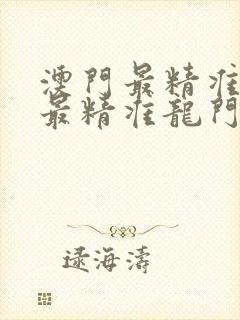 澳門最精准
最精准龍門
逯海濤